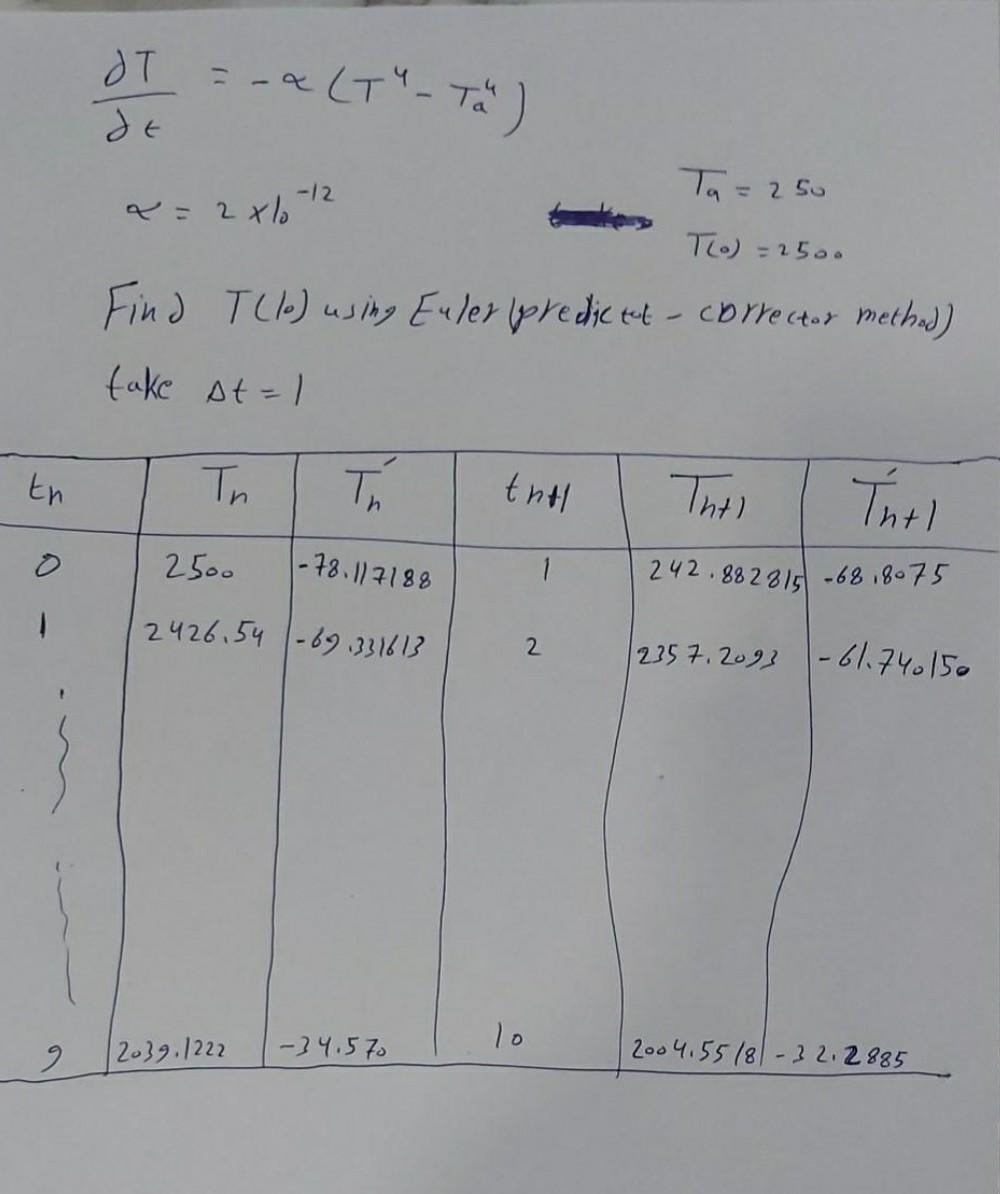 ∂T/∂t = -α (T⁴ - Tₐ⁴)
α = 2 x10⁻¹²
Tₐ = 250
T(0) = 2500
Find T(10) using Euler (predictet - corrector method)
take Δt = 1
tn Tn T´n tn+1 Tn+1 T´n+1
0 2500 -78.117188 1 242.882815 -68.8075
1 2426.54 -69.331613 2 2357.2093 -61.740150
9 2039.1222 -34.570 10 2004.5518 -32.2885